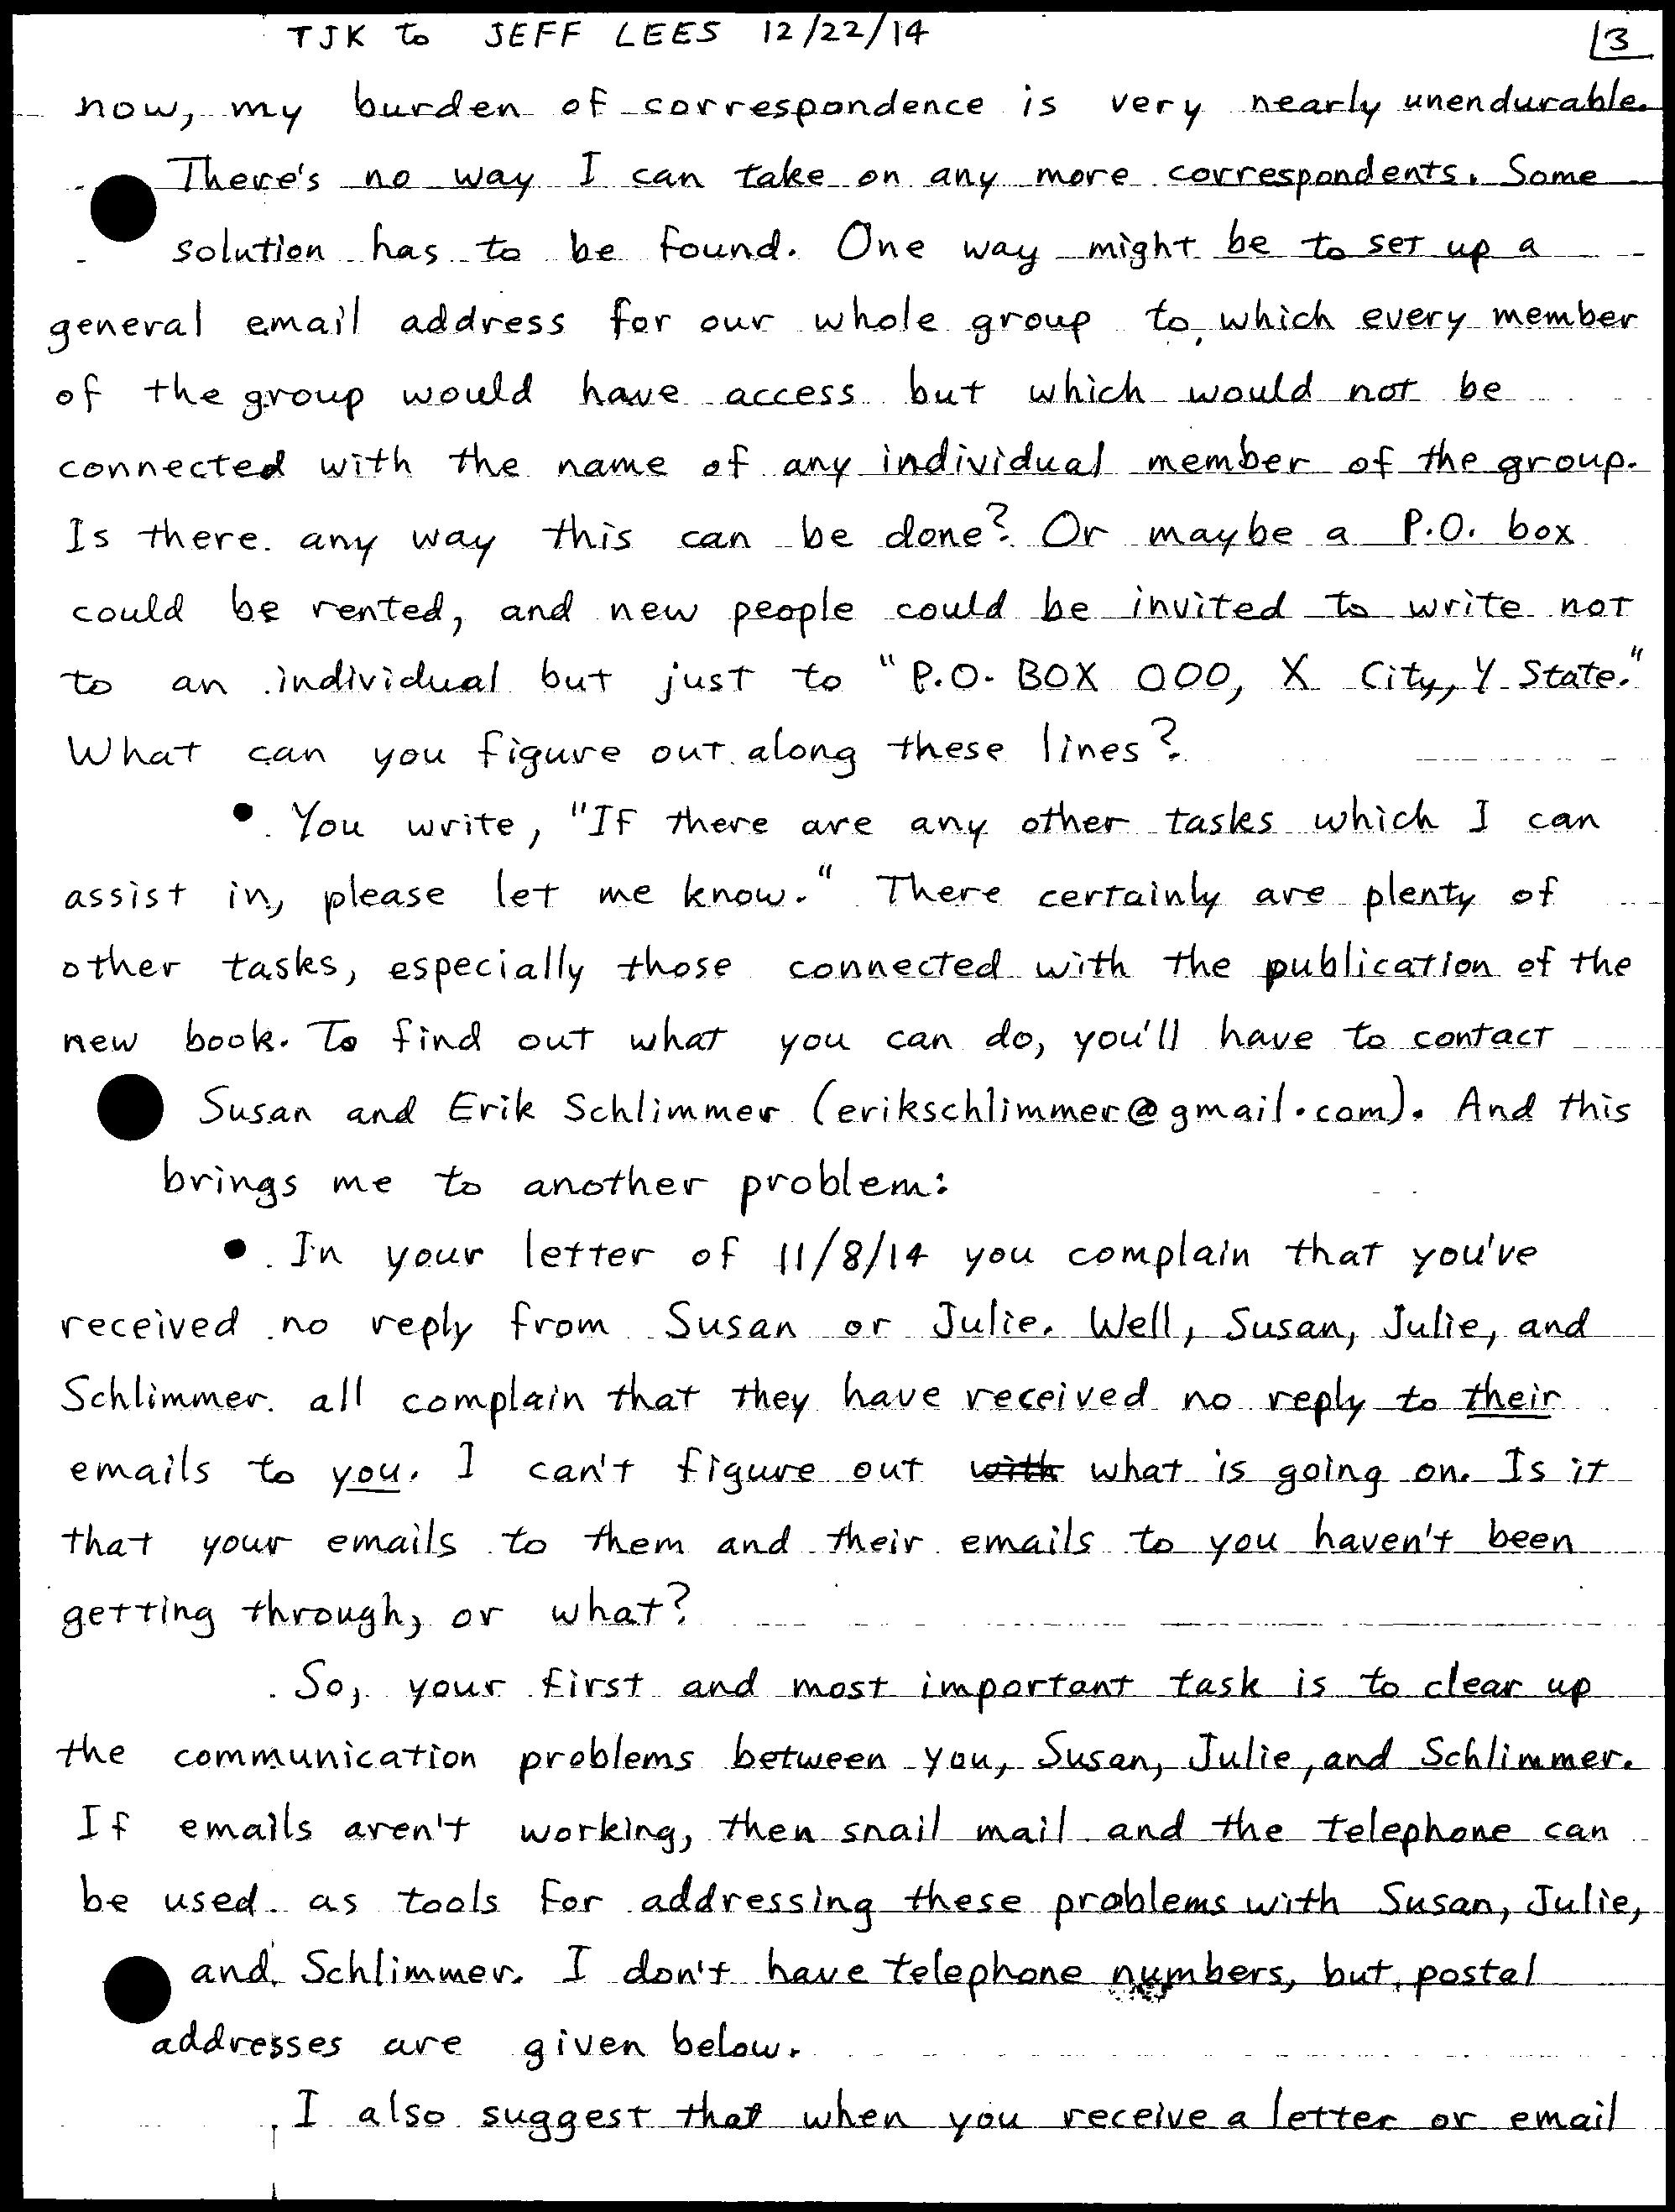 TJK to JEFF LEES 12/22/14 3
now, my burden of correspondence is very nearly unendurable.
There's no way I can take on any more correspondents. Some
solution has to be found. One way might be to set up a
general email address for our whole group to which every member
of the group would have access but which would not be
connected with the name of any individual member of the group.
Is there any way this can be done? Or maybe a P.O. box
could be rented, and new people could be invited to write not
to an individual but just to "P.O. BOX 000, X City, Y State."
What can you figure out along these lines?
• You write, "If there are any other tasks which I can
assist in, please let me know." There certainly are plenty of
other tasks, especially those connected with the publication of the
new book. To find out what you can do, you'll have to contact
Susan and Erik Schlimmer (erikschlimmer@gmail.com). And this
brings me to another problem:
• In your letter of 11/8/14 you complain that you've
received no reply from Susan or Julie. Well, Susan, Julie, and
Schlimmer all complain that they have received no reply to their
emails to you. I can't figure out with what is going on. Is it
that your emails to them and their emails to you haven't been
getting through, or what?
So, your first and most important task is to clear up
the communication problems between you, Susan, Julie, and Schlimmer.
If emails aren't working, then snail mail and the telephone can
be used as tools for addressing these problems with Susan, Julie,
and Schlimmer. I don't have telephone numbers, but postal
addresses are given below.
I also suggest that when you receive a letter or email